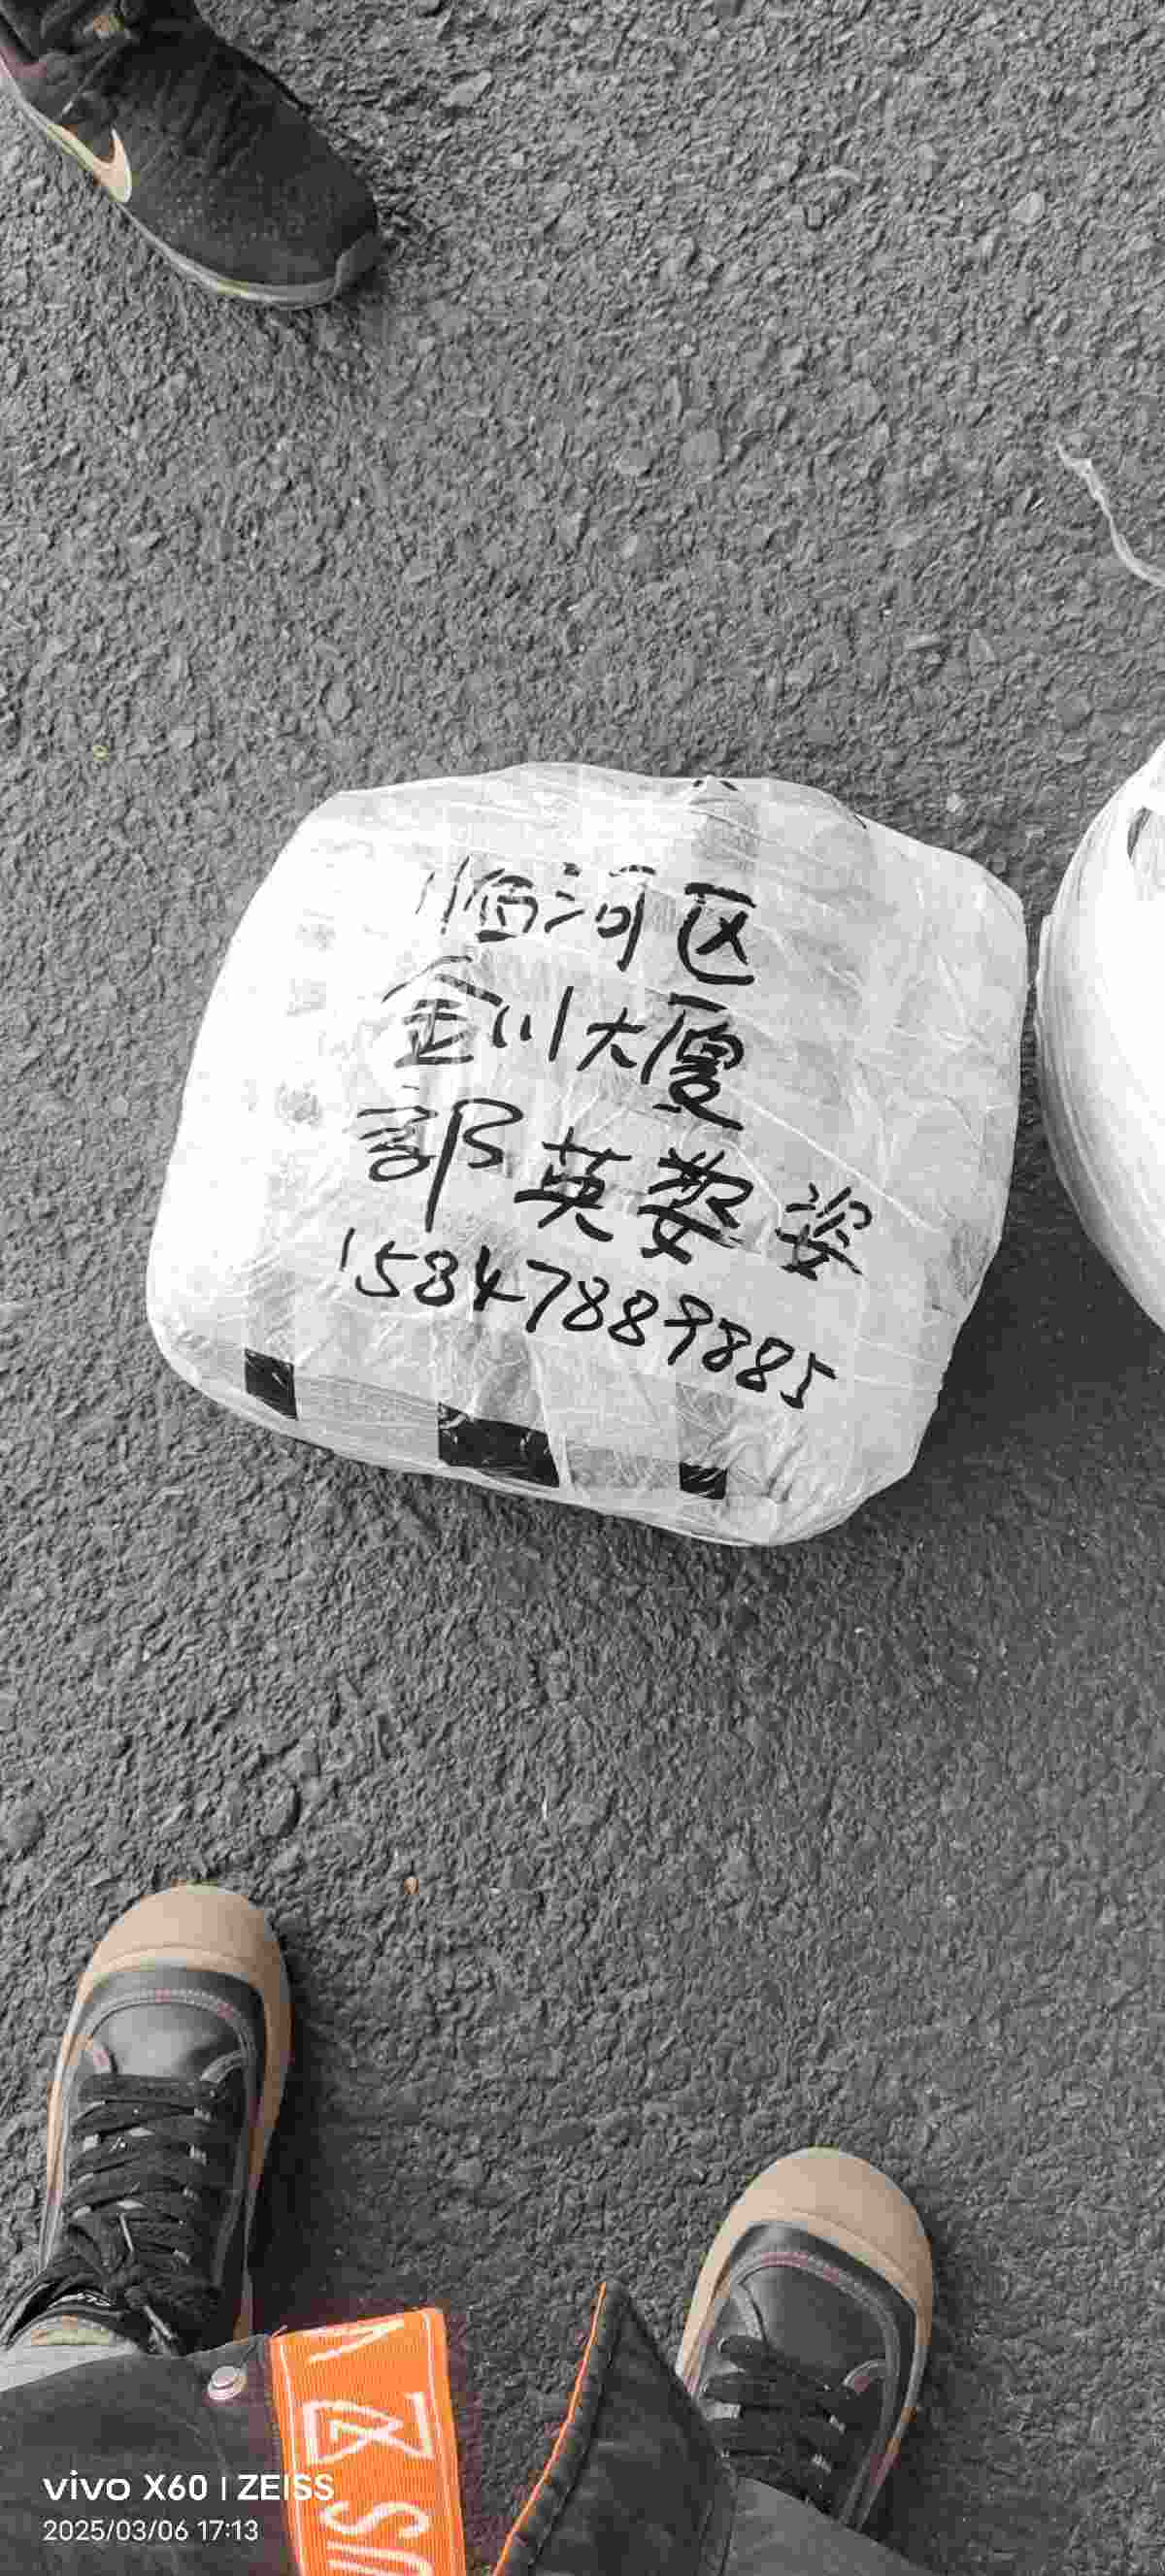 临河区
金川大厦
郭英婺 姿
15847889885
vivo X60 | ZEISS
2025/03/06 17:13